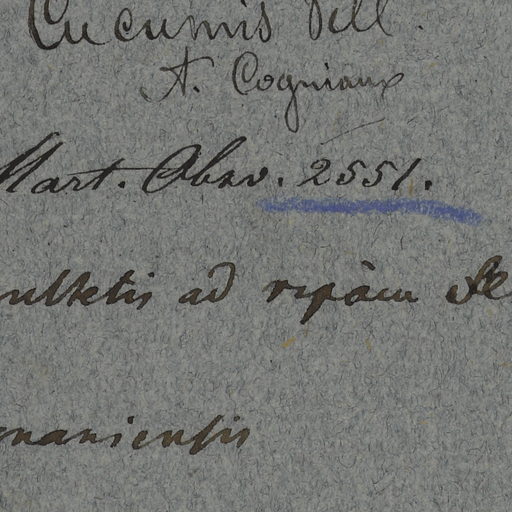 Cucumis
A. Cogniaux
Mart. Obsv. 2551.
ultetis ad ripam
naniensis